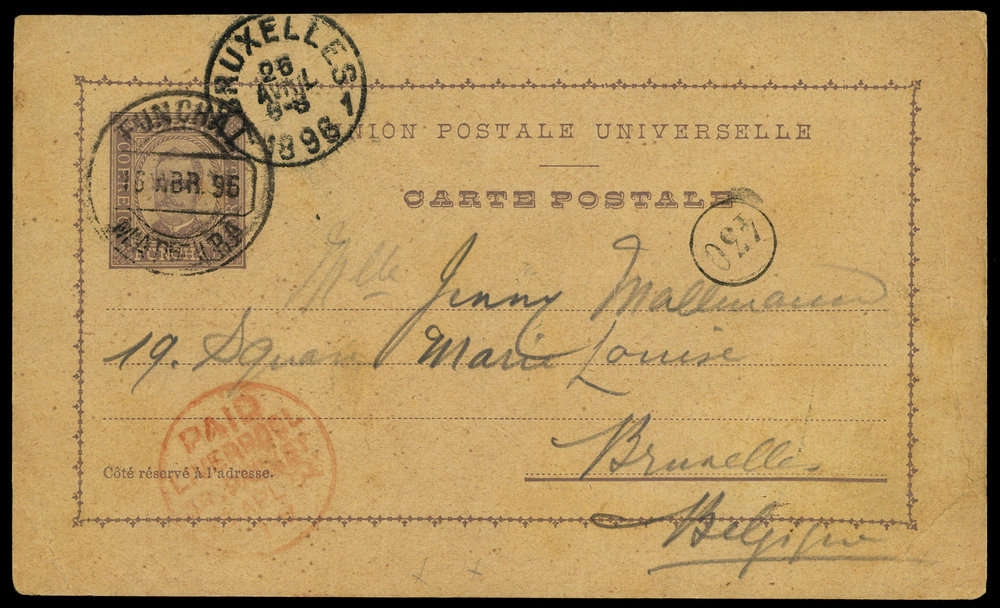 BRUXELLES 1
26
AVRIL
6-8
1896
FUNCHAL
16 ABR. 96
MADEIRA
CORREIO
FUNCHAL
UNION POSTALE UNIVERSELLE
CARTE POSTALE
430
Mlle Jenny Mallmann
19. Square Marie Louise
Bruxelles
Belgique
PAID
LIVERPOOL
Côté réservé à l'adresse.